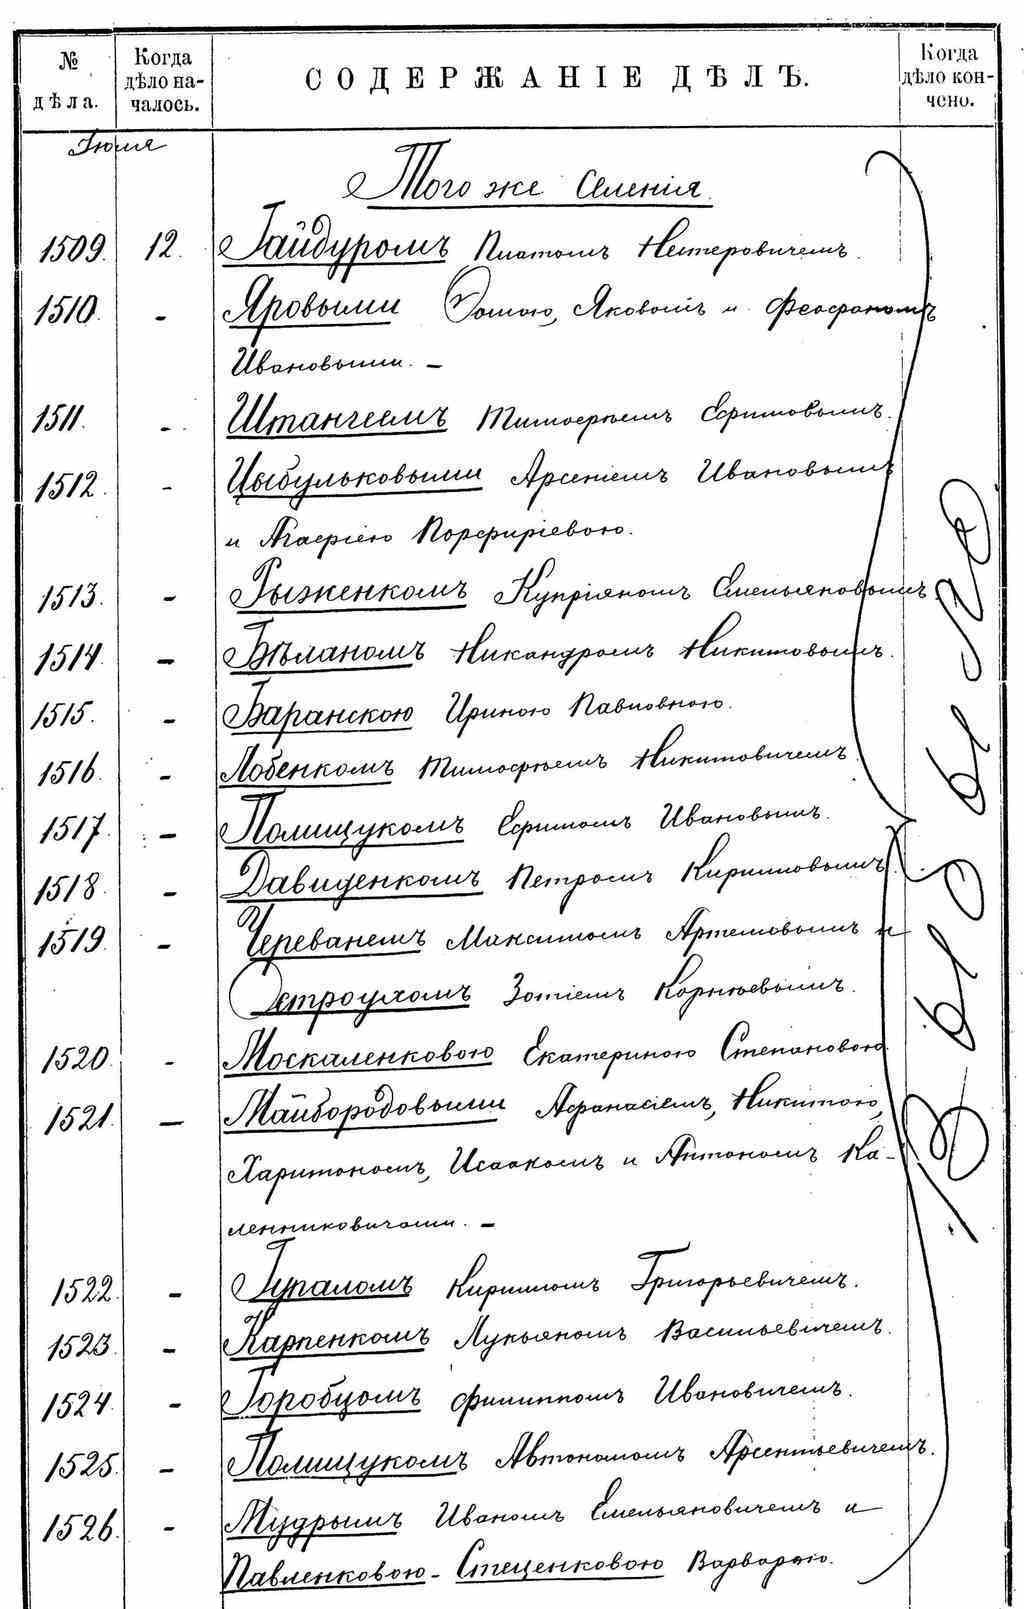 № дѣла.
Когда дѣло на-
чалось.
СОДЕРЖАНІЕ ДѢЛЪ.
Когда дѣло кон-
чено.
Іюля
Того же Селенія.
1509. 12. Гайдуромъ Платомъ Нестеровичемъ.
1510. - Яровыми Ѳомою, Яковомъ и Феофаномъ
Ивановыми. -
1511. - Штангеемъ Тимофѣемъ Ефимовымъ.
1512. - Цыбульковыми Арсеніемъ Ивановымъ
и Агафіею Порфиріевою.
1513. - Рыженкомъ Купріяномъ Емельяновымъ.
1514. - Бѣланомъ Никандромъ Никитовымъ.
1515. - Баранскою Ириною Павловною.
1516. - Лобенкомъ Тимофѣемъ Никитовичемъ.
1517. - Полищукомъ Ефимомъ Ивановымъ.
1518. - Давиденкомъ Петромъ Кирилловымъ.
1519. - Череванемъ Максимомъ Артемовымъ и
Остроухомъ Зотіемъ Корнѣевымъ.
1520. - Москаленковою Екатериною Степановою.
1521. - Майбородовыми Афанасіемъ, Никитою,
Харитономъ, Исаакомъ и Антономъ Ка-
ленниковичами. -
1522. - Гупаломъ Кирилломъ Григорьевичемъ.
1523. - Карпенкомъ Лукьяномъ Васильевичемъ.
1524. - Горобцомъ Филиппомъ Ивановичемъ.
1525. - Полищукомъ Автономомъ Арсентьевичемъ.
1526. - Мудрымъ Иваномъ Емельяновичемъ и
Павленковою-Стеценковою Варварою.
Выбыло